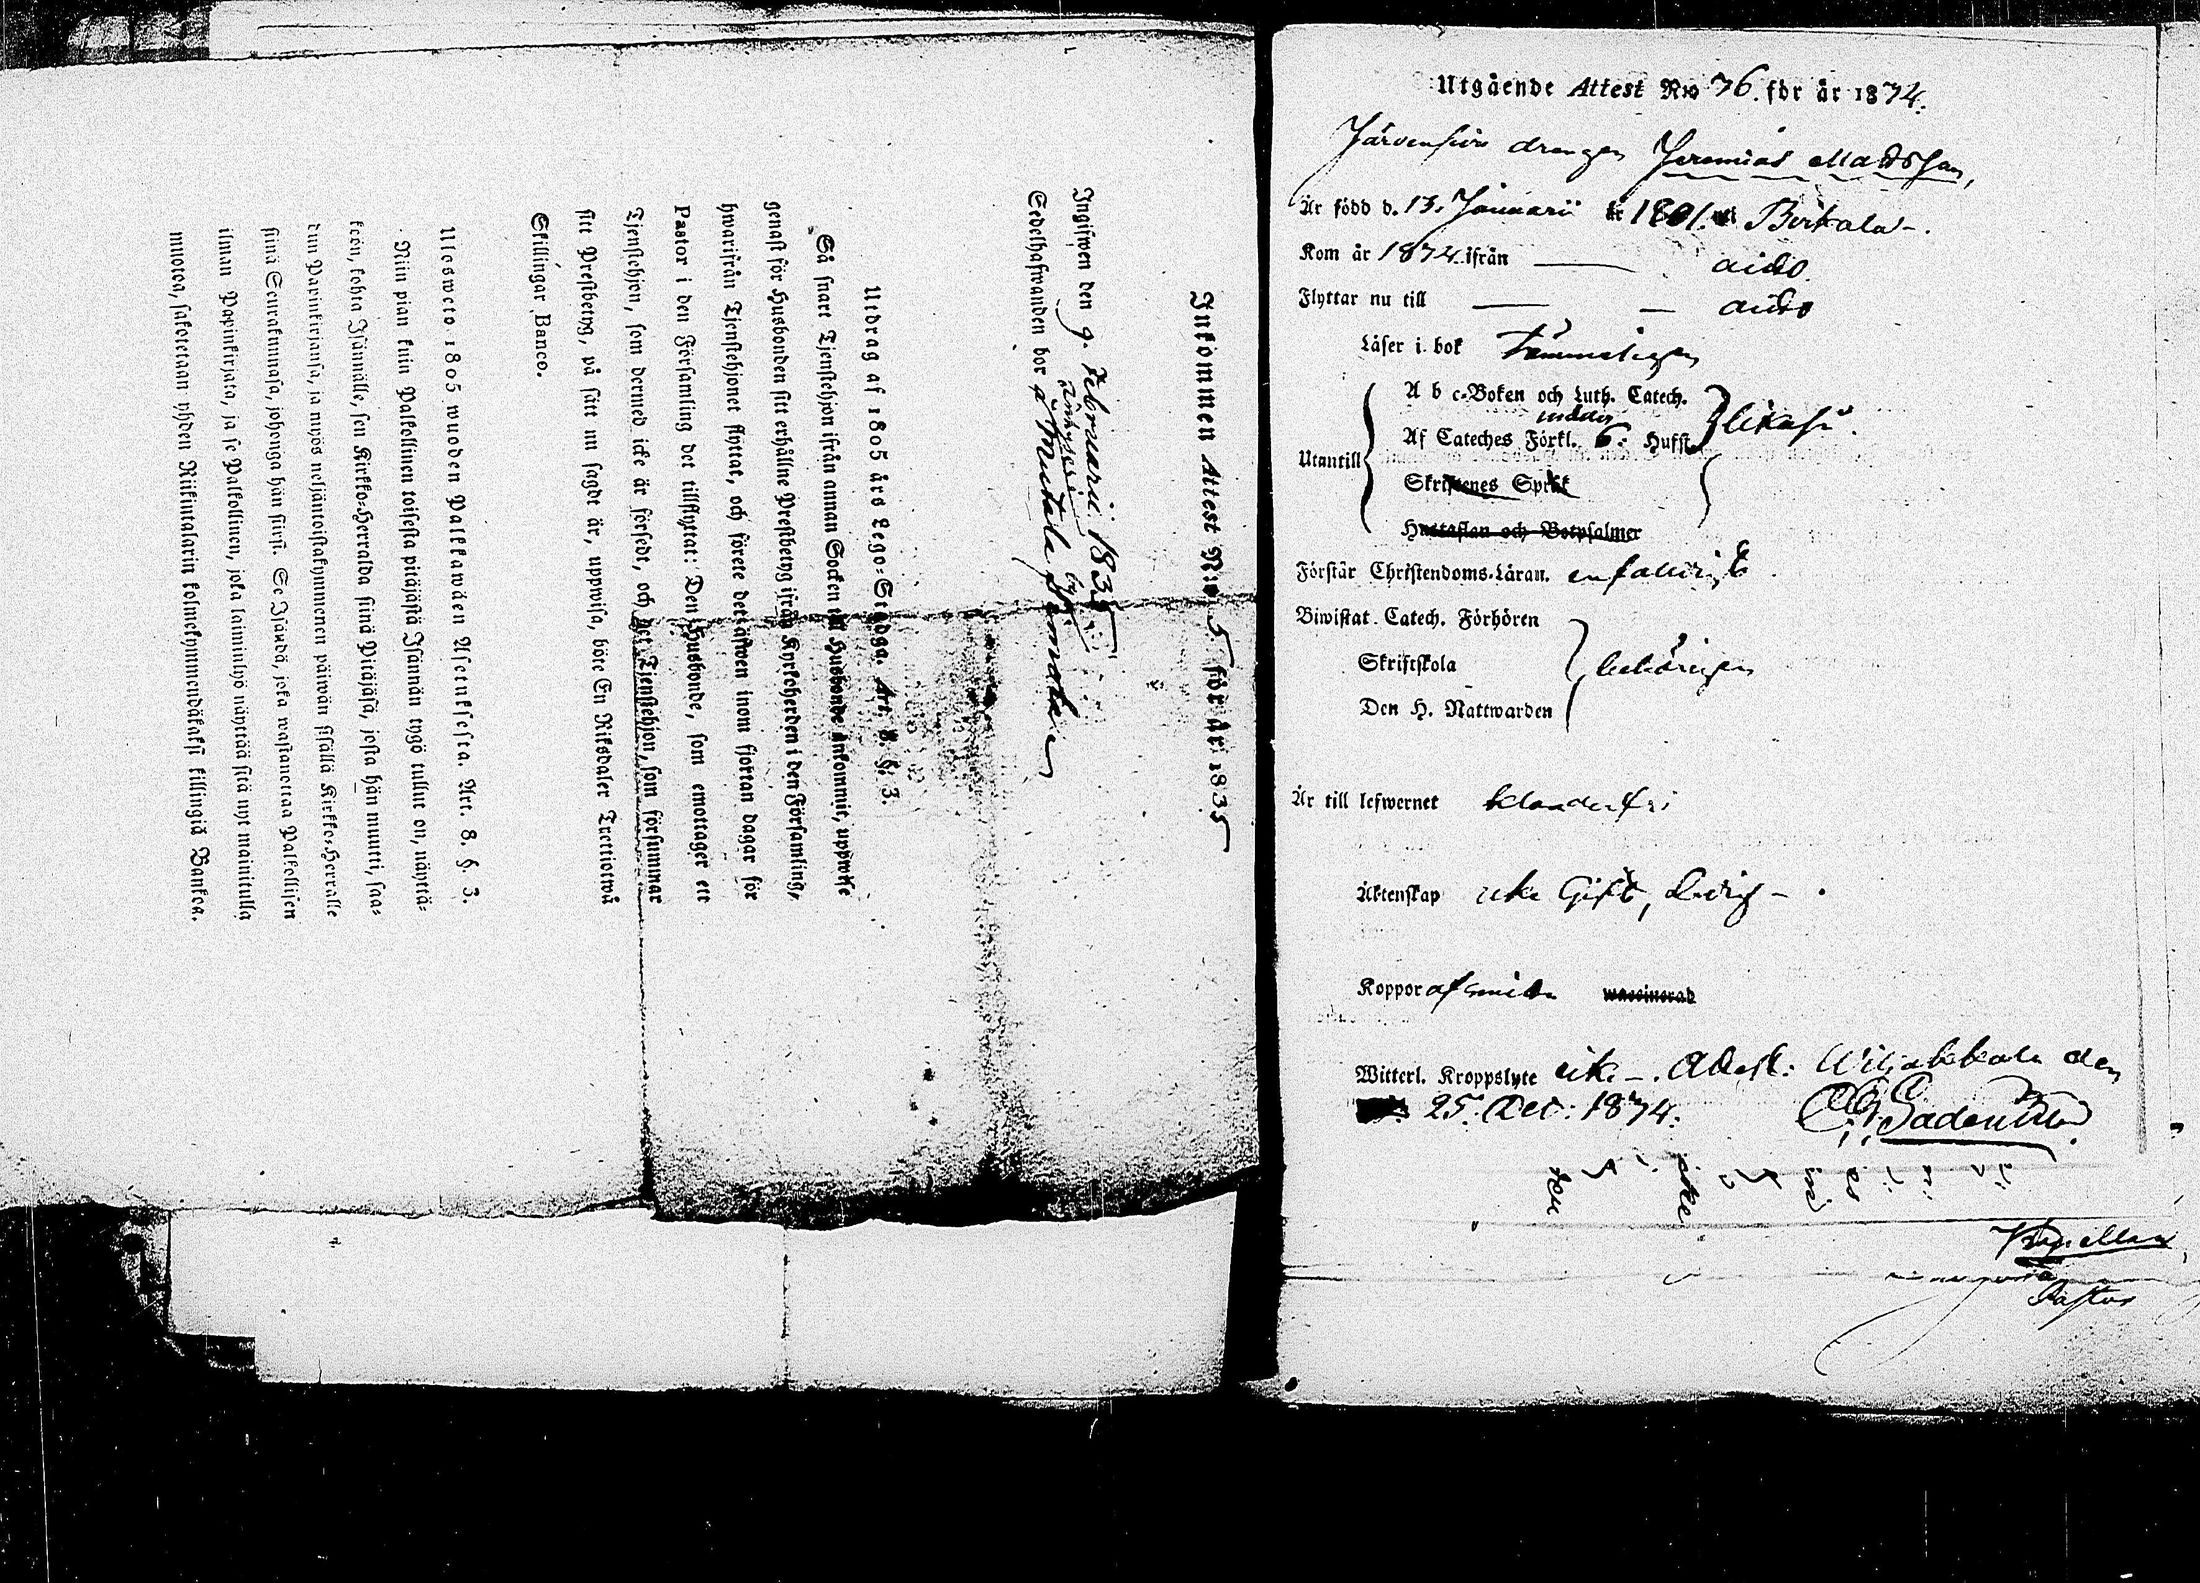 Inkommen Attest N:o 5. för år 1835
Ingifwen den 9. Februarii 1835
Sedelhafwanden bor å Mutala
Utdrag af 1805 års Lego-Stadga. Art. 8. §. 3.
„Så snart Tjenstehjon ifrån annan Socken till Husbonde ankommit, uppwise
genast för Husbonden sitt erhållne Prestbetyg ifrån Kyrkoherden i den Församling,
hwarifrån Tjenstehjonet flyttat, och förete det äfwen inom fjortan dagar för
Pastor i den Församling det tillflyttat: Den Husbonde, som emottager ett
Tjenstehjon, som dermed icke är försedt, och det Tjenstehjon, som försummar
sitt Prestbetyg, på sätt nu sagdt är, uppwisa, böte En Riksdaler Trettiotwå
Skillingar Banco.
Ulosweto 1805 wuoden Palkkawäen Asetuksesta. Art. 8. §. 3.
Niin pian kuin Palkollinen toisesta pitäjästä Isännän tygö tullut on, näyttä-
köön, kohta Isännälle, sen Kirkko-Herralda siinä Pitäjäsä, josta hän muutti, saa-
dun Papinkirjansa, ja myös neljäntoistakymmenen päiwän sisällä Kirkko-Herralle
siinä Seurakunnasa, johonga hän siirsi. Se Isändä, joka wastanottaa Palkollisen
ilman Papinkirjata, ja se Palkollinen, joka laiminlyö näyttää sitä nyt mainitulla
muotoa, sakotetaan yhden Riikintalarin kolmekymmendäkaksi killingiä Bankoa.
Utgående Attest N:o 76. för år 1874.
drengen Jeremias Matsson,
Är född d. 13. Januarii år 1801. Birkala.
Kom år 1874. ifrån — dito
Flyttar nu till — dito
Läser i bok
A b c-Boken och Luth. Catech.
Af Cateches Förkl. 6. Hufst.
Utantill
Skriftenes Språk
Hustaflan och Botpsalmer
Förstår Christendoms-Läran. enfaldigt
Biwistat Catech. Förhören
Skriftskola behörigen
Den H. Nattwarden
Är till lefwernet klanderfri
Äktenskap icke Gift, ledig
Koppor vaccinerad
Witterl. Kroppslyte icke. Attest: den
25. Dec: 1874.
Kapellan
Pastor